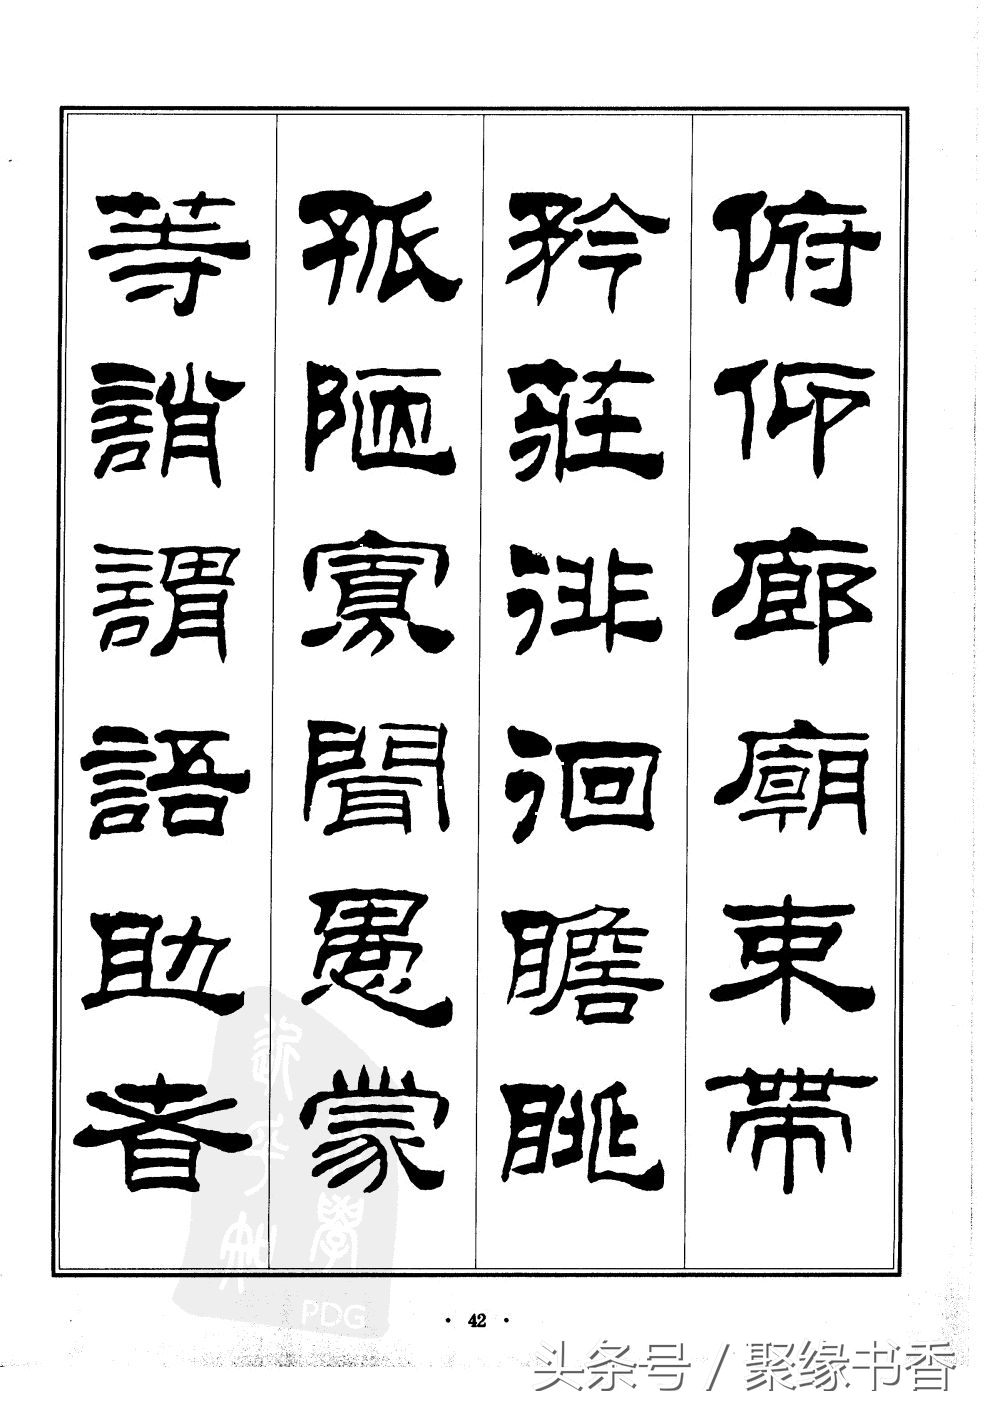 俯仰廊廟束帶
矜莊徘徊瞻眺
孤陋寡聞愚蒙
等誚謂語助者
PDG
· 42 ·
头条号 / 聚缘书香